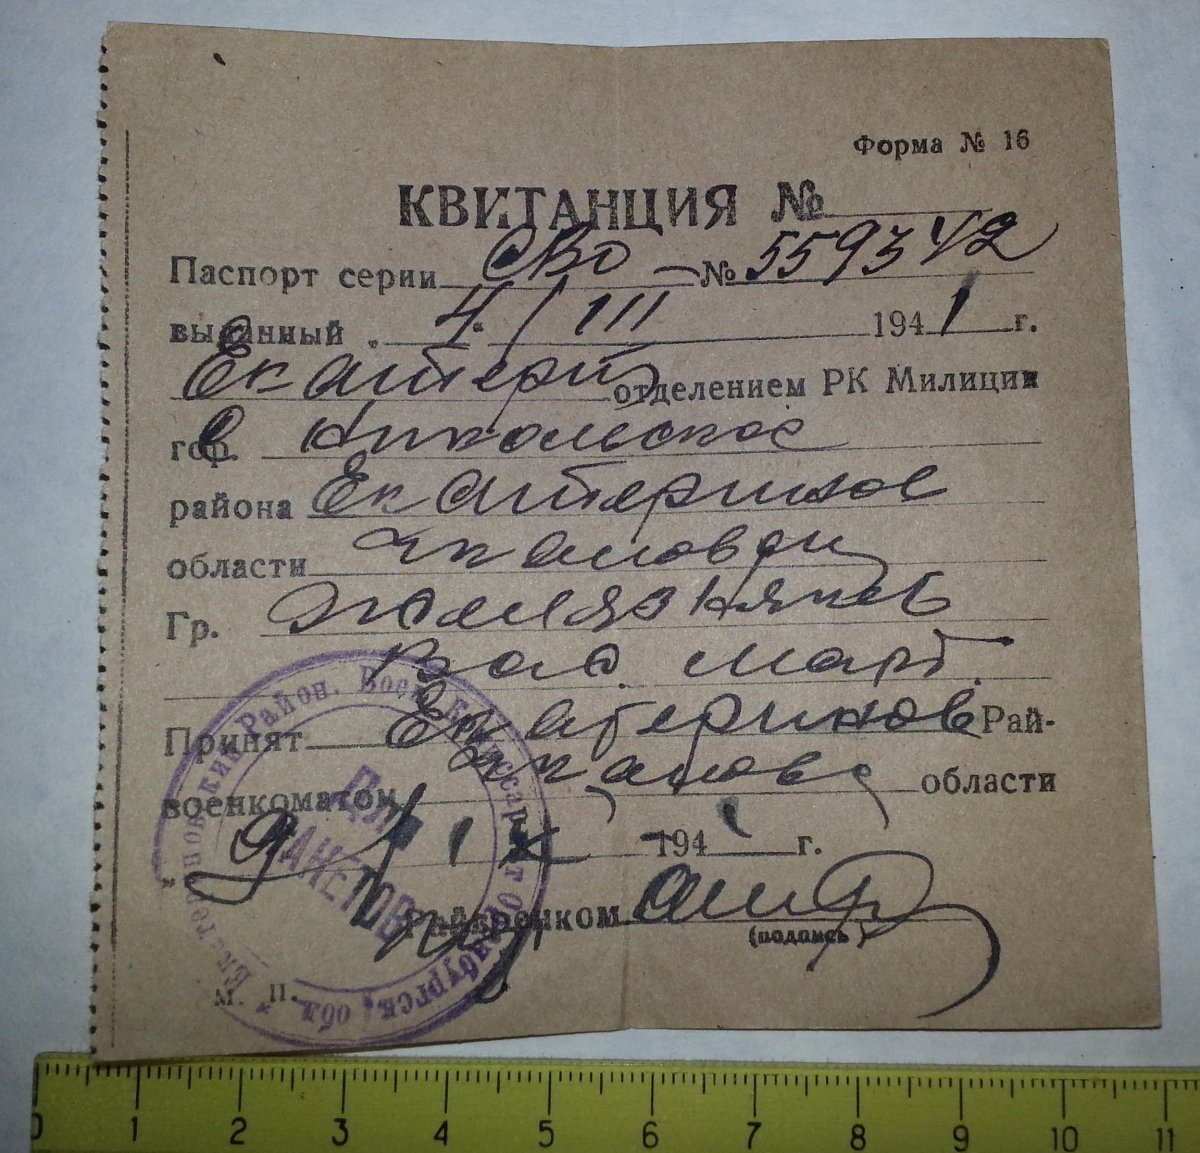 Форма № 16
КВИТАНЦИЯ №
Паспорт серии № 559342
выданный 4/III 1941 г.
Екатерин отделением РК Милиции
гор. с Никольское
района Екатеринов
области Чкаловск
Гр.
Принят Екатеринов Рай-
военкоматом Чкаловс области
9 194 г.
Райвоенком
(подпись)
М. П.
Район. Воен. Комиссариат Оренбургск. обл.
ДЛЯ
ПАКЕТОВ
0 1 2 3 4 5 6 7 8 9 10 11